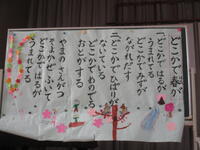 どこかで春が
一、どこかではるが
うまれてる
どこかでみずが
ながれだす
二、どこかでひばりが
ないている
どこかでめのでる
おとがする
やまのさんがつ
そよかぜふいて
どこかではるが
うまれてる